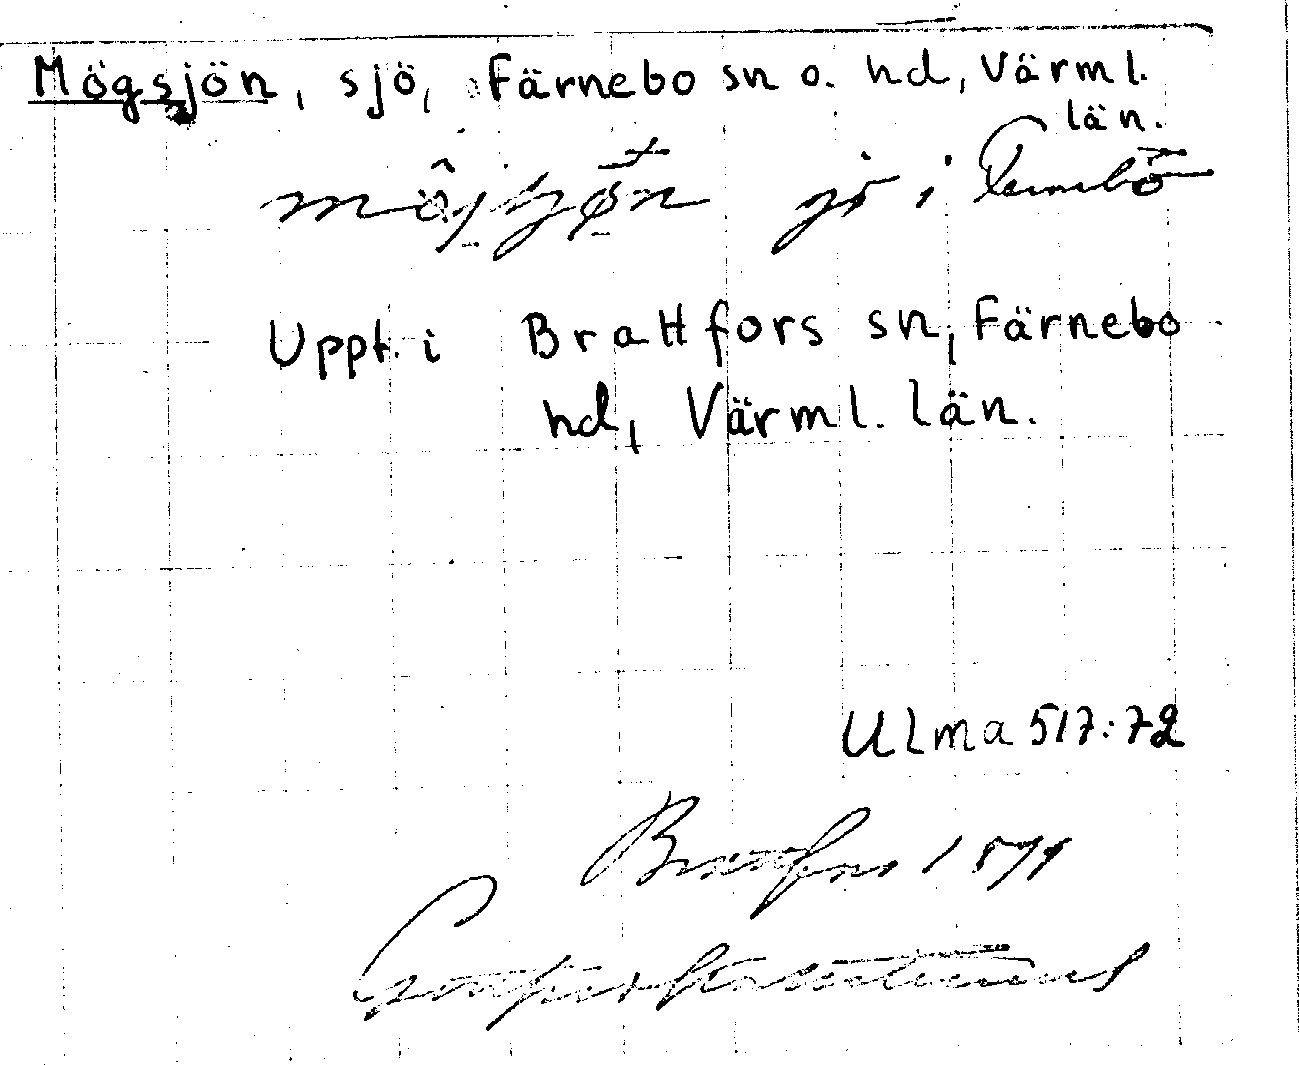 Mögsjön, sjö, Färnebo sn o. hd, Värml.
län.
sjö i Färnebo
Uppt. i Brattfors sn, Färnebo
hd, Värml. län.
Ulma 517:72
Brattfors 1899